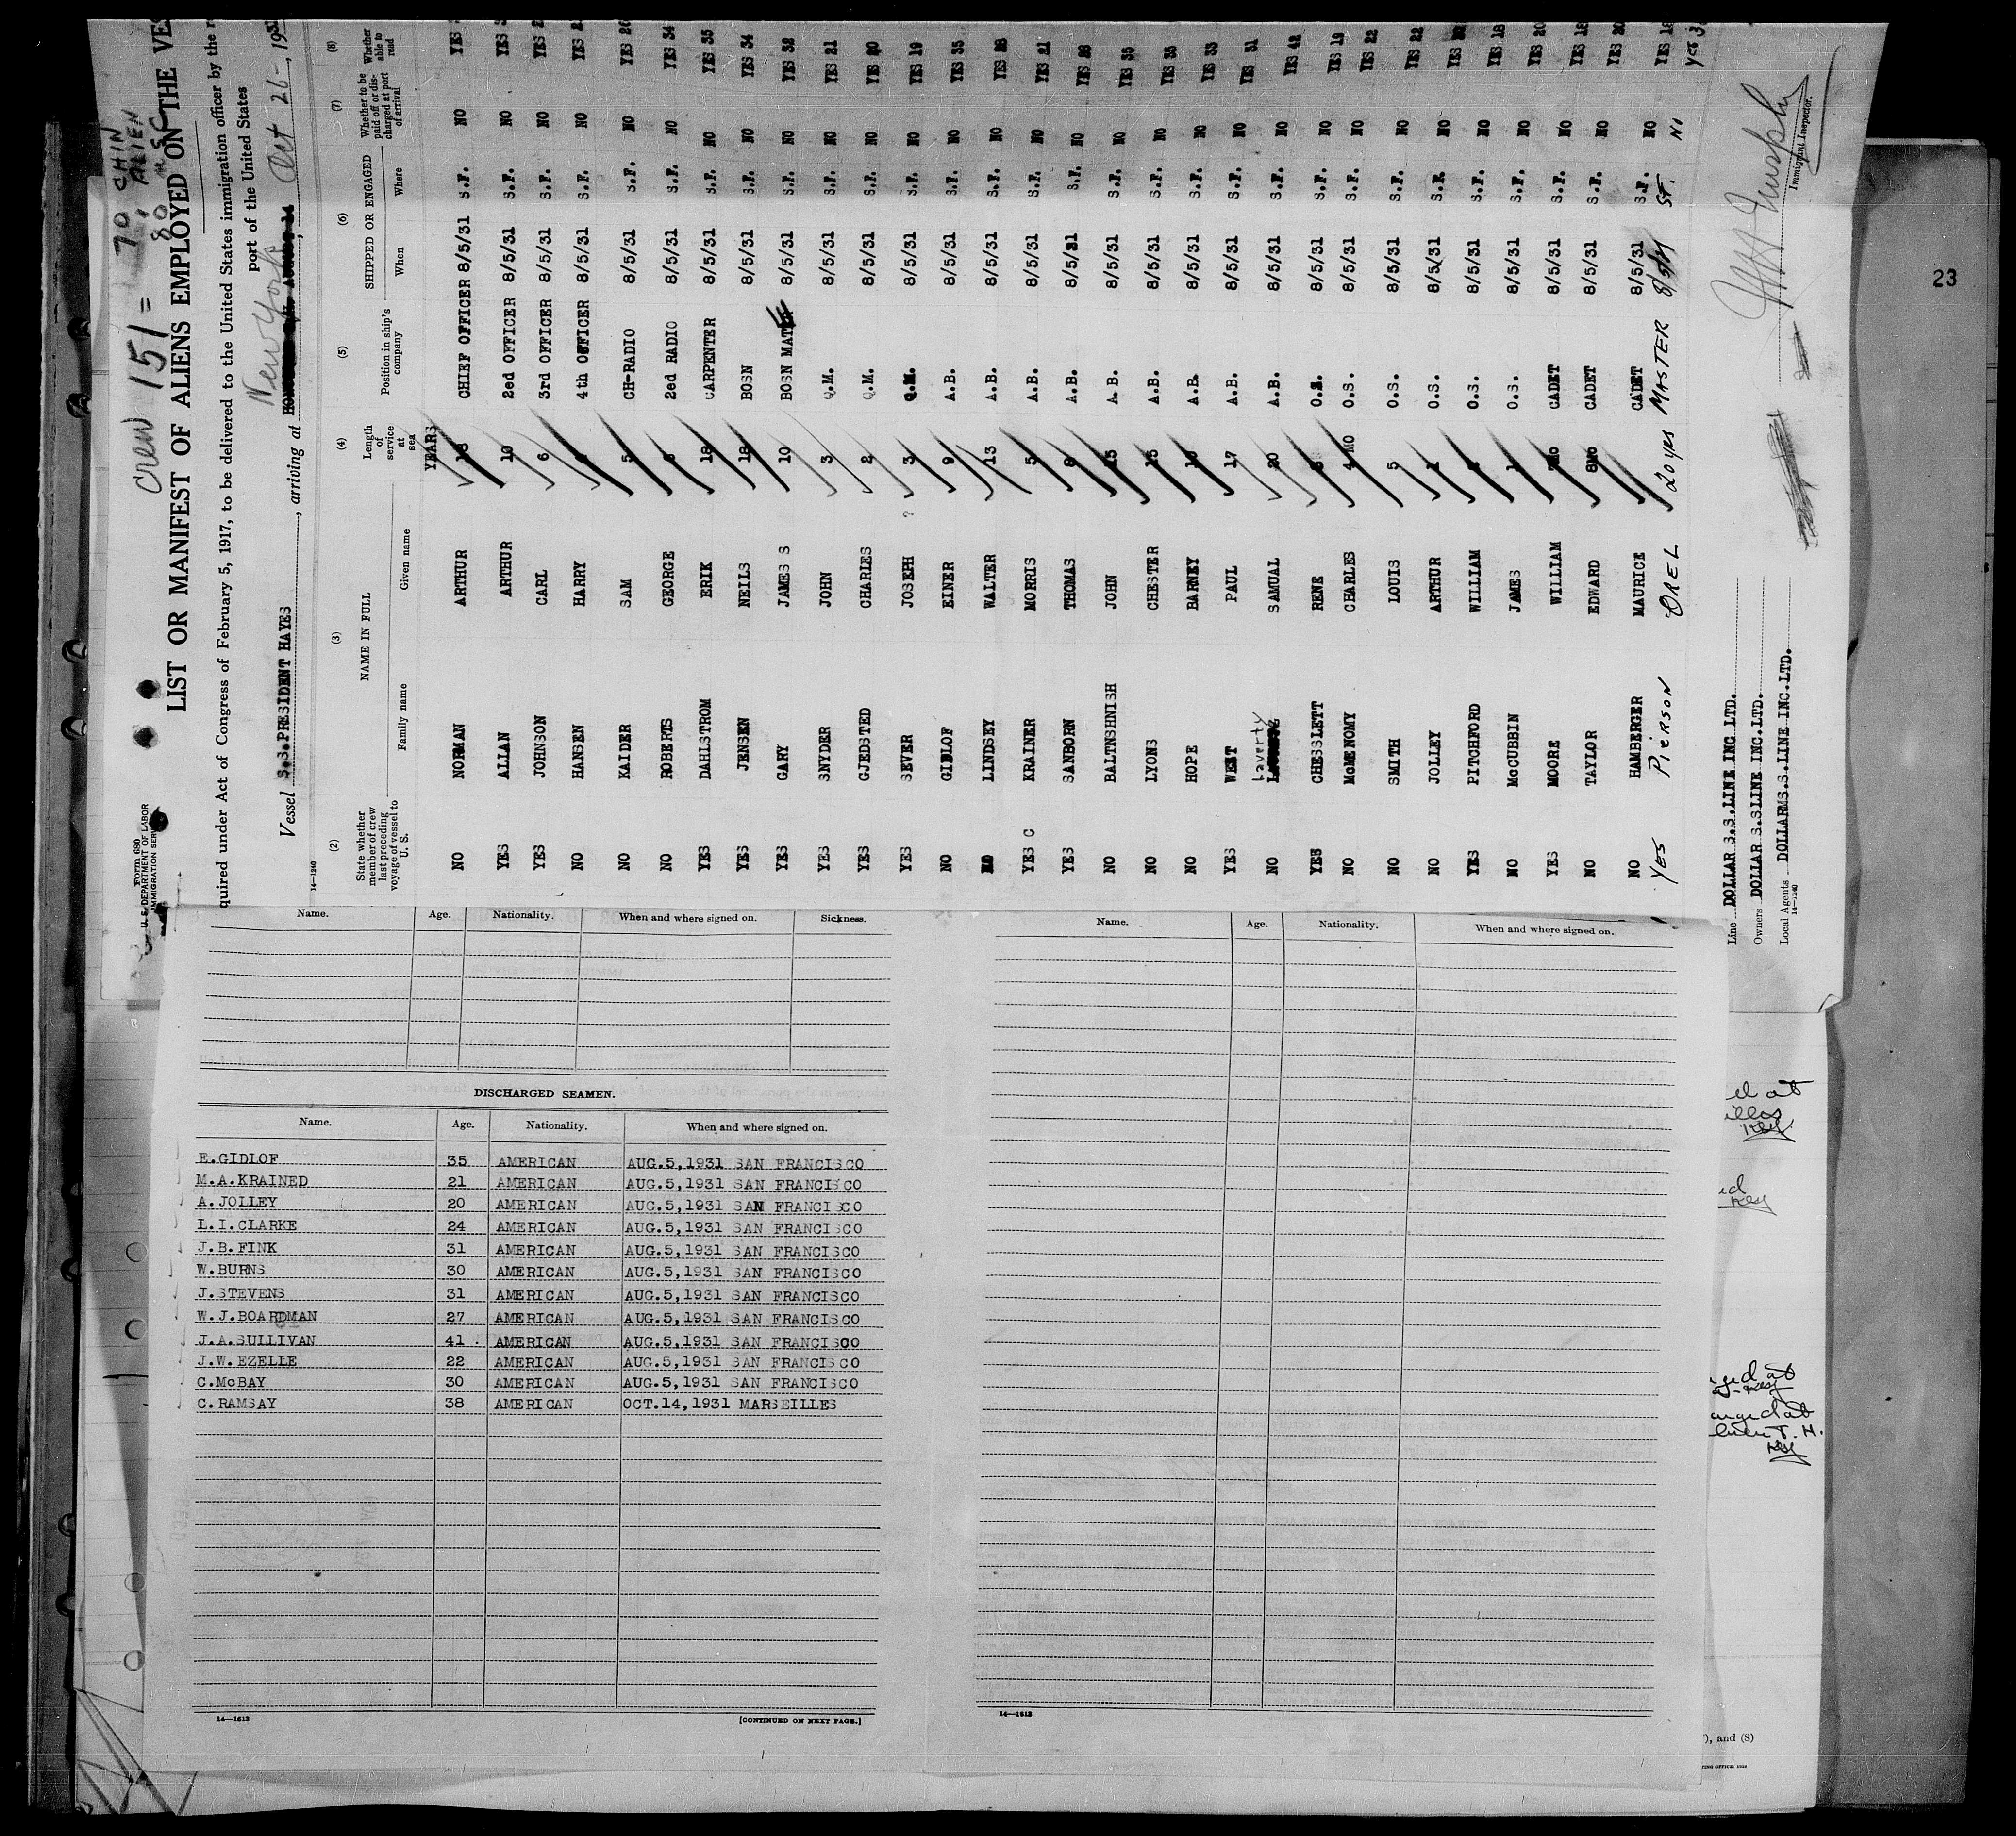 Crew 151 =
70 CHIN
ALIEN
Form 680
U. S. DEPARTMENT OF LABOR
IMMIGRATION SERVICE
LIST OR MANIFEST OF ALIENS EMPLOYED ON THE VES
quired under Act of Congress of February 5, 1917, to be delivered to the United States immigration officer by the r
port of the United States
Vessel S.S.PRESIDENT HAYES, arriving at New York Oct 26-, 1931
14—1240
(2) (3) (4) (5) (6) (7) (8)
State whether member of crew last preceding voyage of vessel to U. S.
NAME IN FULL
Family name Given name
Length of service at sea
Position in ship's company
SHIPPED OR ENGAGED
When Where
Whether to be paid off or discharged at port of arrival
Whether able to read
YEARS
NO NORMAN ARTHUR CHIEF OFFICER 8/5/31 S.F. NO YES
YES ALLAN ARTHUR 10 2ed OFFICER 8/5/31 S.F. NO YES
YES JOHNSON CARL 6 3rd OFFICER 8/5/31 S.F. NO YES
NO HANSEN HARRY 4th OFFICER 8/5/31 S.F. NO YES
NO KAIDER SAM 5 CH-RADIO 8/5/31 S.F. NO YES
NO ROBERTS GEORGE 2ed RADIO 8/5/31 S.F. NO YES 34
YES DAHLSTROM ERIK 18 CARPENTER 8/5/31 S.F. NO YES 35
YES JENSEN NEILS 18 BOSN 8/5/31 S.F. NO YES 34
YES GARY JAMES S 10 BOSN MATE 8/5/31 S.F. NO YES 32
YES SNYDER JOHN 3 Q.M. 8/5/31 S.F. NO YES 21
YES GJEDSTED CHARLES 2 Q.M. 8/5/31 S.F. NO YES 20
YES SEVER JOSEPH 3 Q.M. 8/5/31 S.F. NO YES 19
NO GIDLOF EINER 9 A.B. 8/5/31 S.F. NO YES 35
NO LINDSEY WALTER 13 A.B. 8/5/31 S.F. NO YES 28
YES C KRAINER MORRIS 5 A.B. 8/5/31 S.F. NO YES 21
YES SANBORN THOMAS 8 A.B. 8/5/31 S.F. NO YES 28
NO BALTNSHNISH JOHN 15 A.B. 8/5/31 S.F. NO YES 35
NO LYONS CHESTER 15 A.B. 8/5/31 S.F. NO YES 35
NO HOPE BARNEY A.B. 8/5/31 S.F. NO YES 33
YES WEST PAUL 17 A.B. 8/5/31 S.F. NO YES 31
NO Laverty SAMUAL 20 A.B. 8/5/31 S.F. NO YES 42
YES CHESSLETT RENE O.S. 8/5/31 S.F. NO YES 19
NO McMENOMY CHARLES 4 MO O.S. 8/5/31 S.F. NO YES 22
NO SMITH LOUIS 5 O.S. 8/5/31 S.F. NO YES 22
NO JOLLEY ARTHUR 1 O.S. 8/5/31 S.F. NO YES
YES PITCHFORD WILLIAM O.S. 8/5/31 S.F. NO YES 18
NO McCUBBIN JAMES 1 O.S. 8/5/31 S.F. NO YES 20
YES MOORE WILLIAM 7MO CADET 8/5/31 S.F. NO YES 18
NO TAYLOR EDWARD 8MO CADET 8/5/31 S.F. NO YES 20
NO HAMBERGER MAURICE CADET 8/5/31 S.F. NO YES 18
YES PIERSON OREL 20 yrs MASTER 8/5/31 SF. NO yes
Line DOLLAR S.S.LINE INC LTD.
Owners DOLLAR S.S LINE INC.LTD.
Local Agents DOLLARMS.S.LINE INC.LTD.
14—1240
Murphy
Immigrant Inspector.
23
Name. Age. Nationality. When and where signed on. Sickness.
DISCHARGED SEAMEN.
Name. Age. Nationality. When and where signed on.
E.GIDLOF 35 AMERICAN AUG.5,1931 SAN FRANCISCO
M.A.KRAINED 21 AMERICAN AUG.5,1931 SAN FRANCISCO
A.JOLLEY 20 AMERICAN AUG.5,1931 SAN FRANCISCO
L.I.CLARKE 24 AMERICAN AUG.5,1931 SAN FRANCISCO
J.B.FINK 31 AMERICAN AUG.5,1931 SAN FRANCISCO
W.BURNS 30 AMERICAN AUG.5,1931 SAN FRANCISCO
J.STEVENS 31 AMERICAN AUG.5,1931 SAN FRANCISCO
W.J.BOARDMAN 27 AMERICAN AUG.5,1931 SAN FRANCISCO
J.A.SULLIVAN 41 AMERICAN AUG.5,1931 SAN FRANCISCO
J.W.EZELLE 22 AMERICAN AUG.5,1931 SAN FRANCISCO
C.McBAY 30 AMERICAN AUG.5,1931 SAN FRANCISCO
C.RAMSAY 38 AMERICAN OCT.14,1931 MARSEILLES
14—1613
[CONTINUED ON NEXT PAGE.]
Name. Age. Nationality. When and where signed on.
14—1613
), and (8)